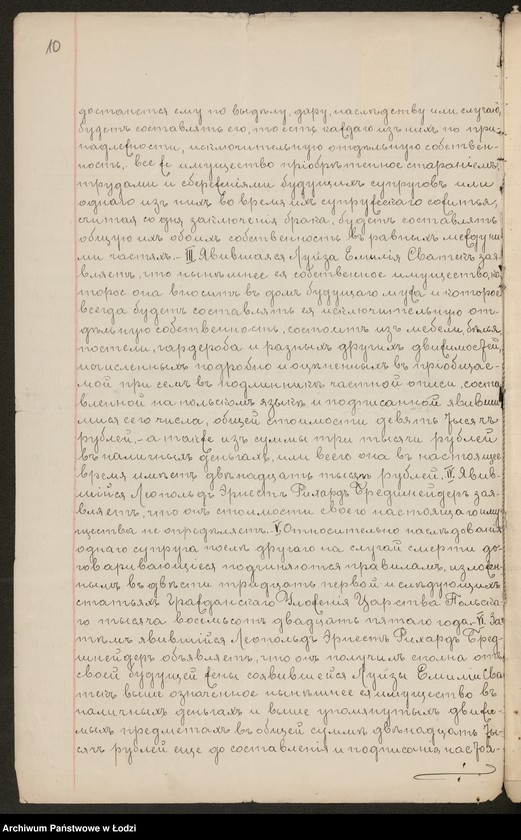 10
достанется ему по выдѣлу, дару, наслѣдству или случаю,
будетъ составлять его, то есть каждаго изъ нихъ по при-
надлежности, исключительную отдѣльную собствен-
ность, все же имущество приобрѣтенное стараніемъ,
трудами и сбереженіями будущихъ супруговъ или
одного изъ нихъ во время ихъ супружескаго сожитья,
считая со дня заключенія брака, будетъ составлять
общую ихъ обоихъ собственность въ равныхъ между ни-
ми частяхъ.- III Явившаяся Луиза Емилія Сватекъ зая-
вляетъ, что нынѣшнее ея собственное имущество, ко-
торое она вноситъ въ домъ будущаго мужа и которое
всегда будетъ составлять ея исключительную от-
дѣльную собственность, состоитъ изъ мебели, бѣлья,
постели, гардероба и разныхъ другихъ движимостей,
исчисленныхъ подробно и оцѣненныхъ въ пріобщае-
мой при семъ въ подлинникѣ частной описи, соста-
вленной на польскомъ языкѣ и подписанной явивши-
мися сего числа, общей стоимости девять тысячъ
рублей,- а также изъ суммы три тысячи рублей
въ наличныхъ деньгахъ, или всего она въ настоящее
время имѣетъ двѣнадцать тысячъ рублей. IV. Явив-
шійся Леопольдъ Эрнестъ Рихардъ Бредшнейдеръ зая-
вляетъ, что онъ стоимости своего настоящаго иму-
щества не опредѣляетъ. V. Относительно наслѣдованія
одного супруга послѣ другаго на случай смерти до-
говаривающіеся подчиняются правиламъ, изложен-
нымъ въ двѣсти тридцать первой и слѣдующихъ
статьяхъ Гражданскаго Уложенія Царства Польска-
го тысяча восемьсотъ двадцать пятаго года.- VI. За-
тѣмъ явившійся Леопольдъ Эрнестъ Рихардъ Бред-
шнейдеръ объявляетъ, что онъ получилъ сполна отъ
своей будущей жены соявившейся Луизы Емиліи Сва-
текъ выше означенное нынѣшнее ея имущество въ
наличныхъ деньгахъ и выше упомянутыхъ движи-
мыхъ предметахъ въ общей суммѣ двѣнадцать ты-
сячъ рублей еще до составленія и подписанія настоя-
Archiwum Państwowe w Łodzi